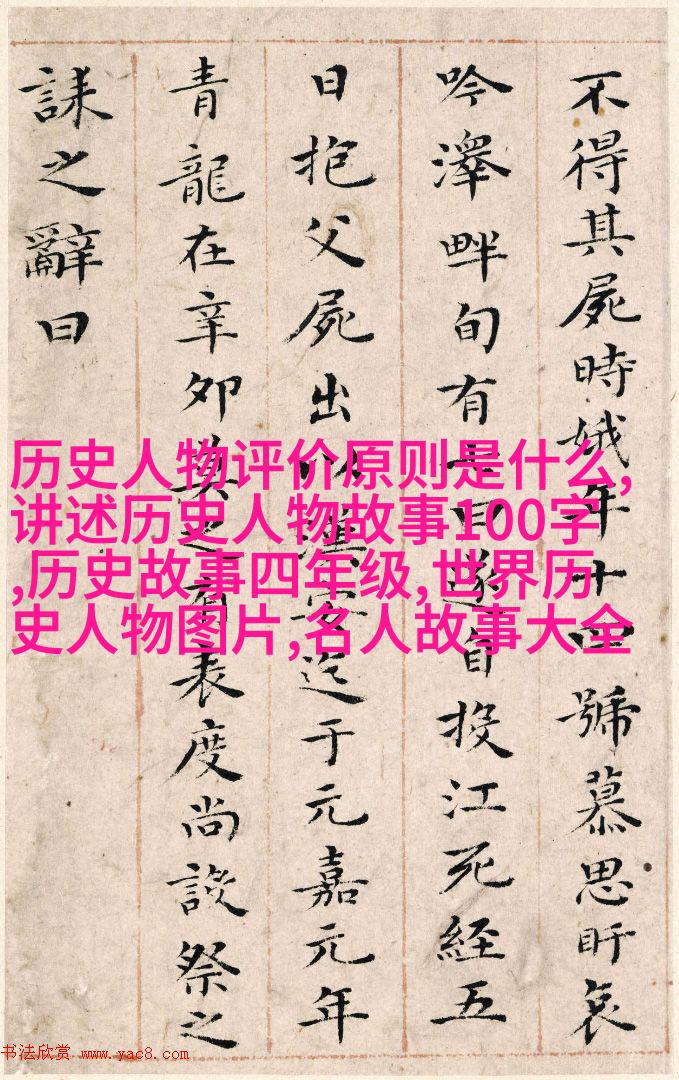 不得其屍時娥年十四號慕思盱哀
吟澤畔旬有七日遂自投江死經五
日抱父屍出以漢安迄于元嘉元年
青龍在辛卯莫之有表度尚設祭之
誄之辭曰
历史人物评价原则是什么,
讲述历史人物故事100字
,历史故事四年级,世界历
史人物图片,名人故事大全
书法欣赏 www.yac8.com